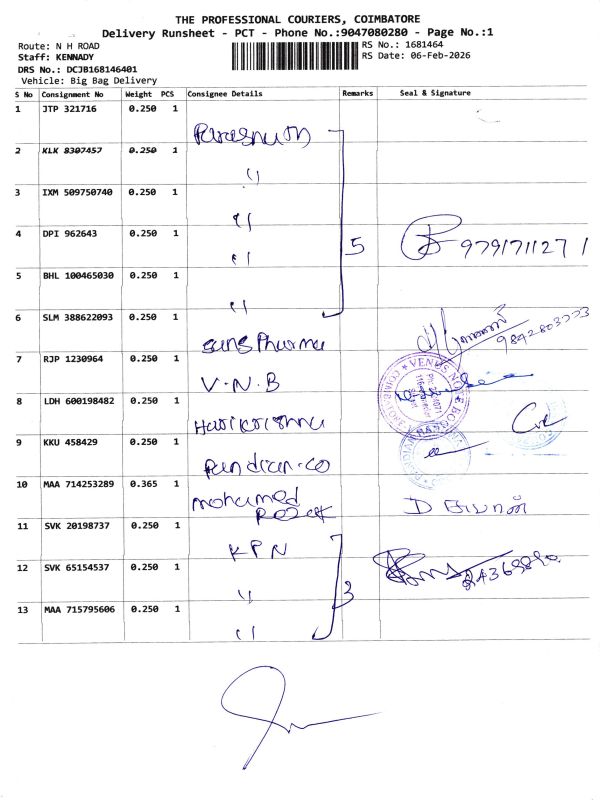 THE PROFESSIONAL COURIERS, COIMBATORE
Delivery Runsheet - PCT - Phone No.:9047080280 - Page No.:1
Route: N H ROAD
RS No.: 1681464
Staff: KENNADY
RS Date: 06-Feb-2026
DRS No.: DCJB168146401
Vehicle: Big Bag Delivery
S No Consignment No Weight PCS Consignee Details Remarks Seal & Signature
1 JTP 321716 0.250 1
Parasnath
2 KLK 8307457 0.250 1
"
3 IXM 509750740 0.250 1
"
4 DPI 962643 0.250 1
" 5 9791711271
5 BHL 100465030 0.250 1
"
6 SLM 388622093 0.250 1
Sans Pharma 9842803773
7 RJP 1230964 0.250 1
V.N.B
8 LDH 600198482 0.250 1
Harikrishna
9 KKU 458429 0.250 1
Pandian.co
10 MAA 714253289 0.365 1
mohamed
11 SVK 20198737 0.250 1
KPN
12 SVK 65154537 0.250 1
" 3
13 MAA 715795606 0.250 1
"